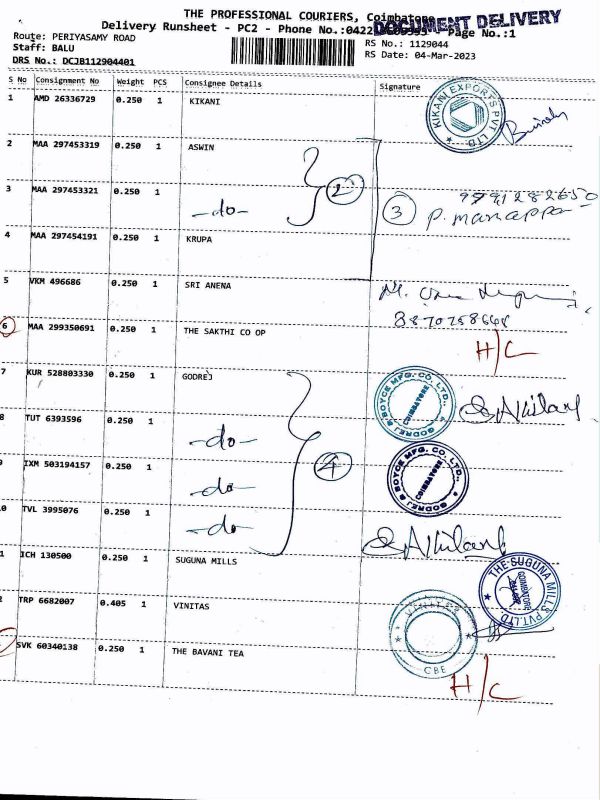 THE PROFESSIONAL COURIERS, Coimbatore
DOCUMENT DELIVERY
Delivery Runsheet - PC2 - Phone No.:0422 Page No.:1
Route: PERIYASAMY ROAD
RS No.: 1129044
Staff: BALU
RS Date: 04-Mar-2023
DRS No.: DCJB112904401
S No Consignment No Weight PCS Consignee Details Signature
1 AMD 26336729 0.250 1 KIKANI
KIKANI EXPORTS PVT LTD
2 MAA 297453319 0.250 1 ASWIN
2
3 MAA 297453321 0.250 1
-do-
3
P. Manappa
4 MAA 297454191 0.250 1 KRUPA
5 VKM 496686 0.250 1 SRI ANENA
6 MAA 299350691 0.250 1 THE SAKTHI CO OP
H/C
7 KUR 528803330 0.250 1 GODREJ
GODREJ & BOYCE MFG. CO. LTD., COIMBATORE
8 TUT 6393596 0.250 1
-do-
4
GODREJ & BOYCE MFG. CO. LTD., COIMBATORE
9 IXM 503194157 0.250 1
-do-
0 TVL 3995076 0.250 1
-do-
1 ICH 130500 0.250 1 SUGUNA MILLS
THE SUGUNA MILLS PVT. LTD. COIMBATORE
2 TRP 6682007 0.405 1 VINITAS
CBE
SVK 60340138 0.250 1 THE BAVANI TEA
H/C